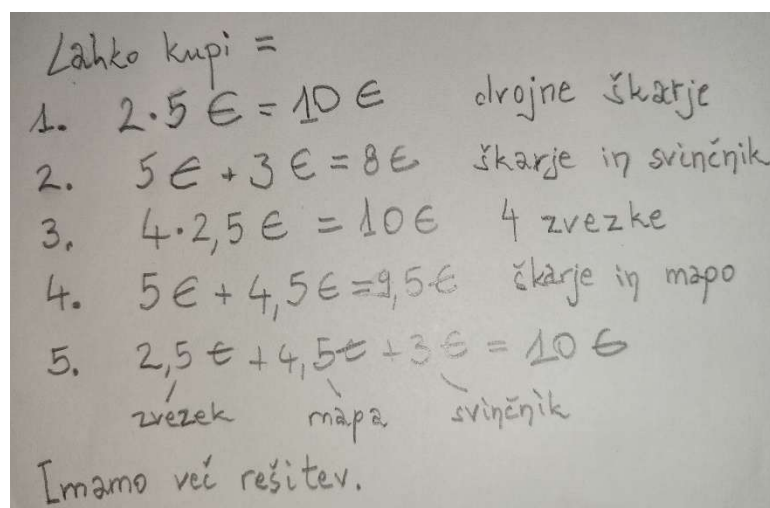 Lahko kupi =
1. 2·5 € = 10 € dvojne škarje
2. 5 € + 3 € = 8 € škarje in svinčnik
3. 4·2,5 € = 10 € 4 zvezke
4. 5 € + 4,5 € = 9,5 € škarje in mapo
5. 2,5 € + 4,5 € + 3 € = 10 €
zvezek mapa svinčnik
Imamo več rešitev.